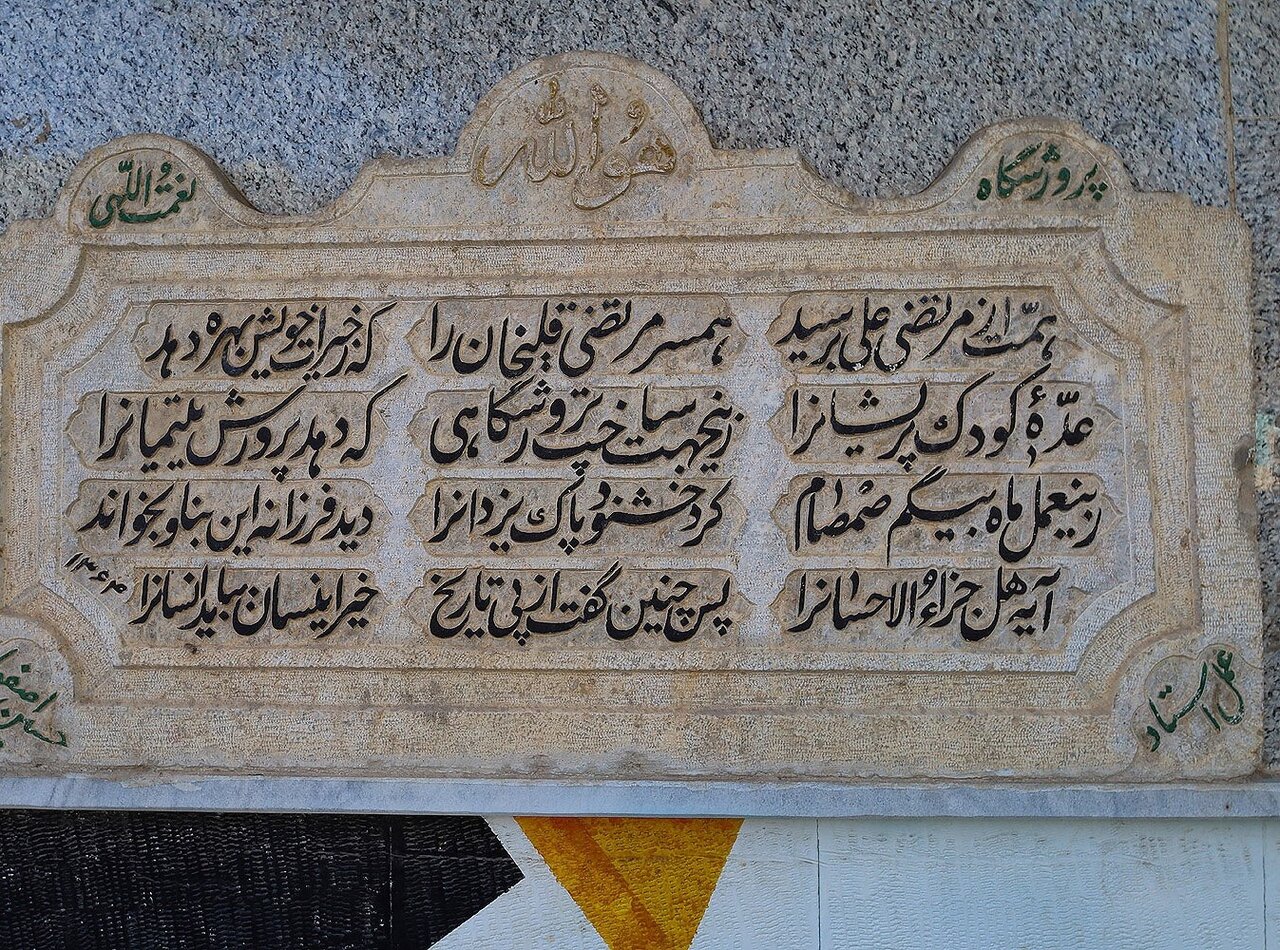 هُوَاللّٰه
پرورشگاه نعمتُ اللّهی
همّت از مرتضی علی برسید همسر مرتضی قلیخان را که ز خیرات خویش بهره دهد
عدّهٔ کودک پریشانرا زینجهت ساخت پرورشگاهی که دهد پرورش یتیمانرا
زینعمل ماه بیگم صمصام کرد خشنود پاک یزدانرا دید فرزانه این بنا و بخواند
آیه هل جزاءُ الاحسانرا پس چنین گفت از پی تاریخ خیر اینسان بباید انسانرا
عمل استاد حسین